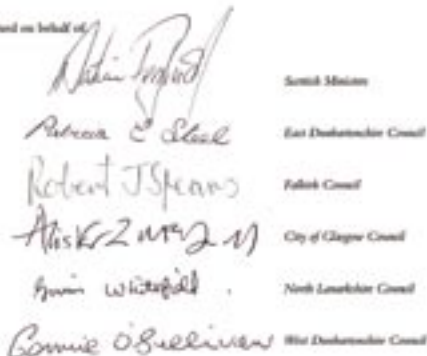 Signed on behalf of
Scottish Ministers
Patricia E Steel East Dunbartonshire Council
Robert J Spears Falkirk Council
City of Glasgow Council
Gavin Whitefield North Lanarkshire Council
Connie O'Sullivan West Dunbartonshire Council